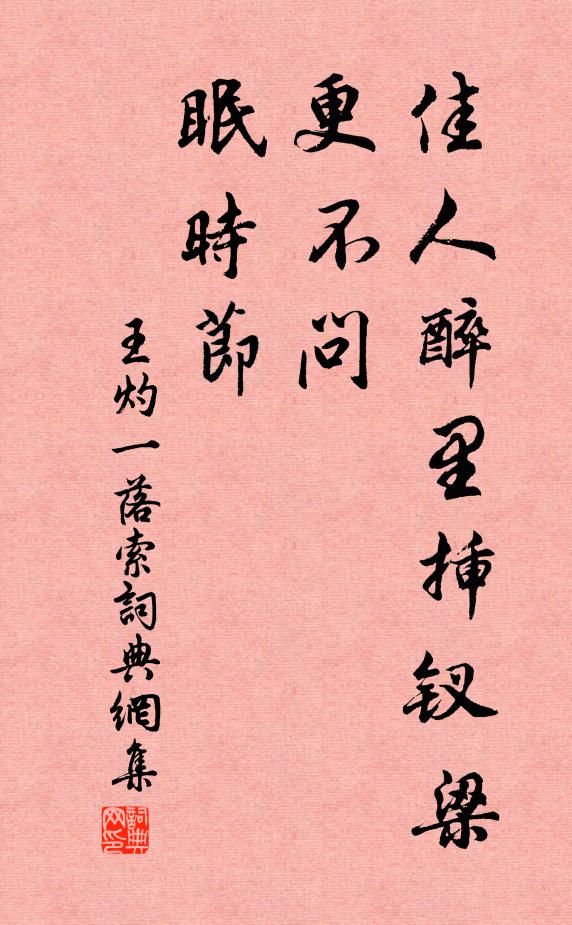 佳人醉里插钗梁
更不问
眠時節
王灼一落索詞典網集
詞典网印